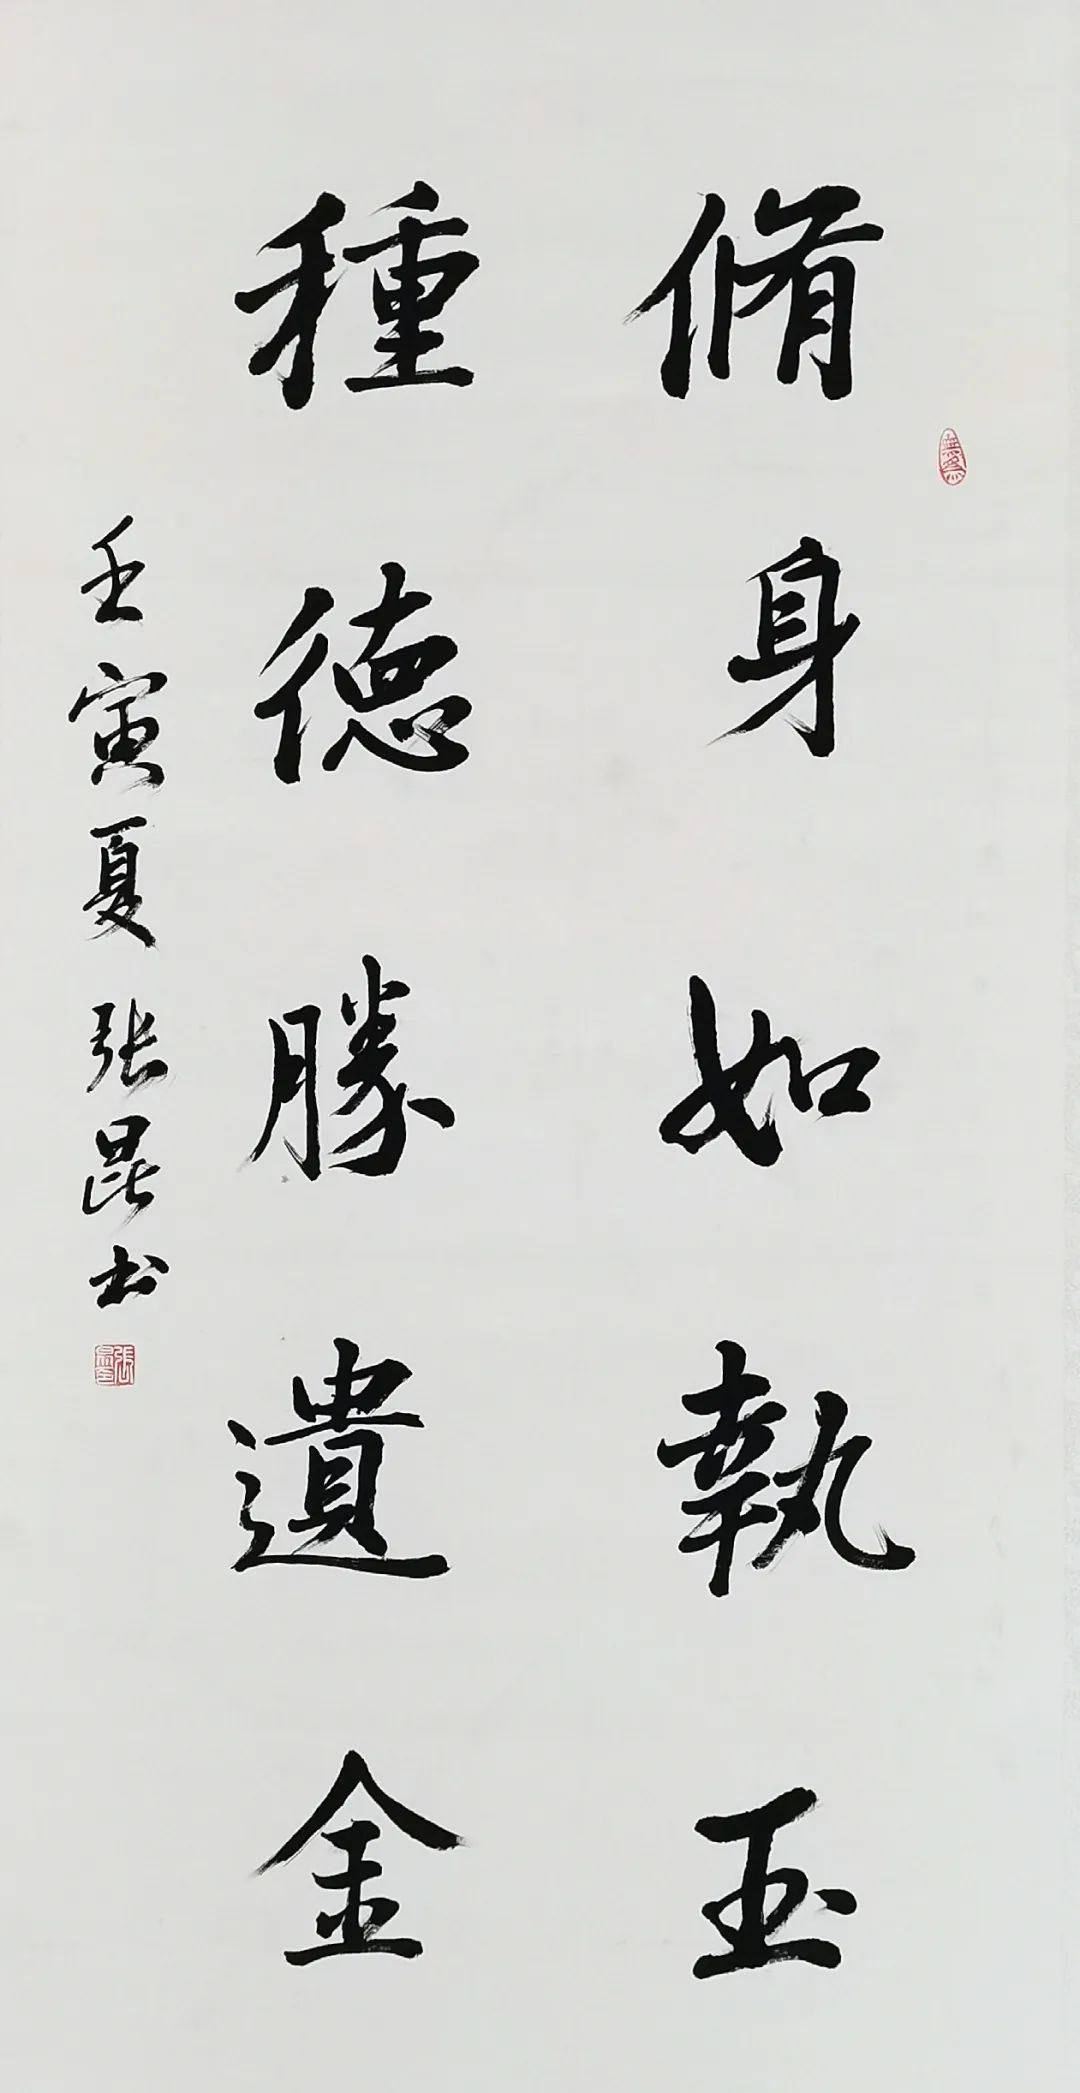 脩身如執玉
種德勝遺金
壬寅夏張昆书